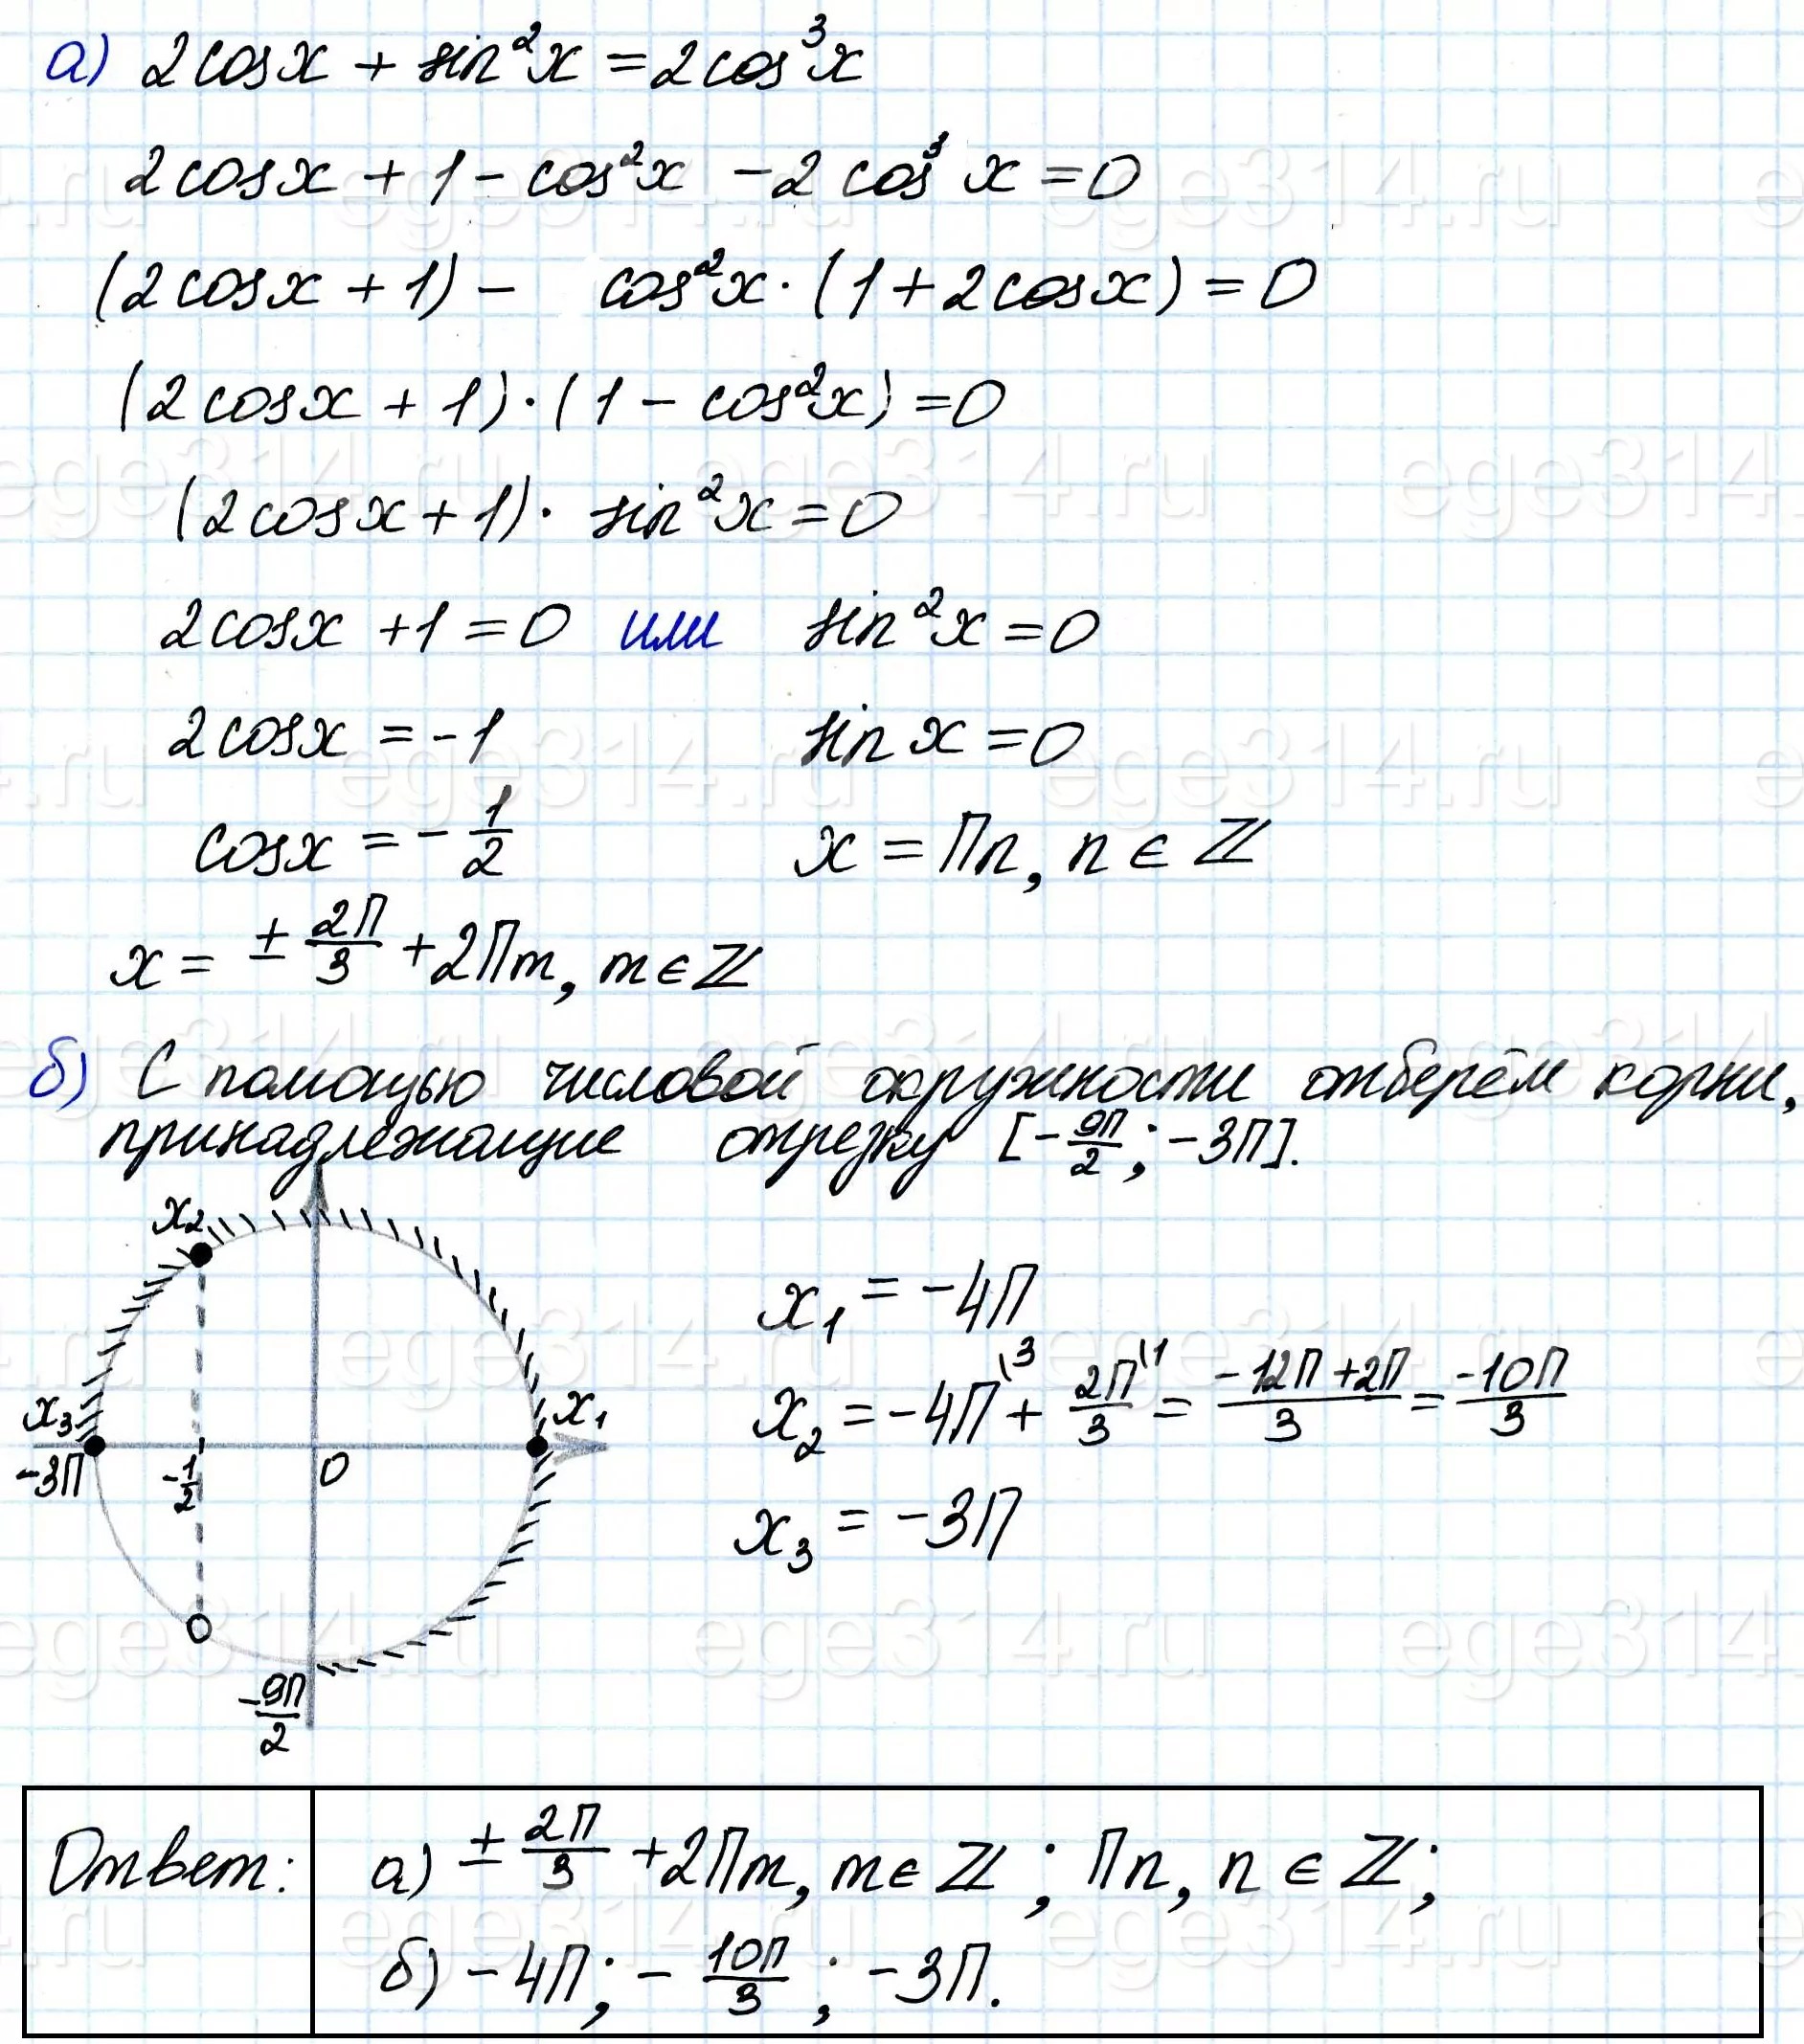 а) 2cosx + sin²x = 2cos³x
2cosx + 1 - cos²x - 2cos³x = 0
(2cosx + 1) - cos²x · (1 + 2cosx) = 0
(2cosx + 1) · (1 - cos²x) = 0
(2cosx + 1) · sin²x = 0
2cosx + 1 = 0 или sin²x = 0
2cosx = -1 sinx = 0
cosx = -1/2 x = Пn, n ∈ ℤ
x = ± 2П/3 + 2Пm, m ∈ ℤ
б) С помощью числовой окружности отберём корни,
принадлежащие отрезку [-9П/2; -3П].
x₂
x₁ = -4П
x₂ = -4П\3 + 2П\1/3 = -12П + 2П/3 = -10П/3
x₃ x₁
-3П -1/2 0
x₃ = -3П
-9П/2
Ответ: а) ± 2П/3 + 2Пm, m ∈ ℤ; Пn, n ∈ ℤ;
б) -4П; -10П/3; -3П.
ege314.ru